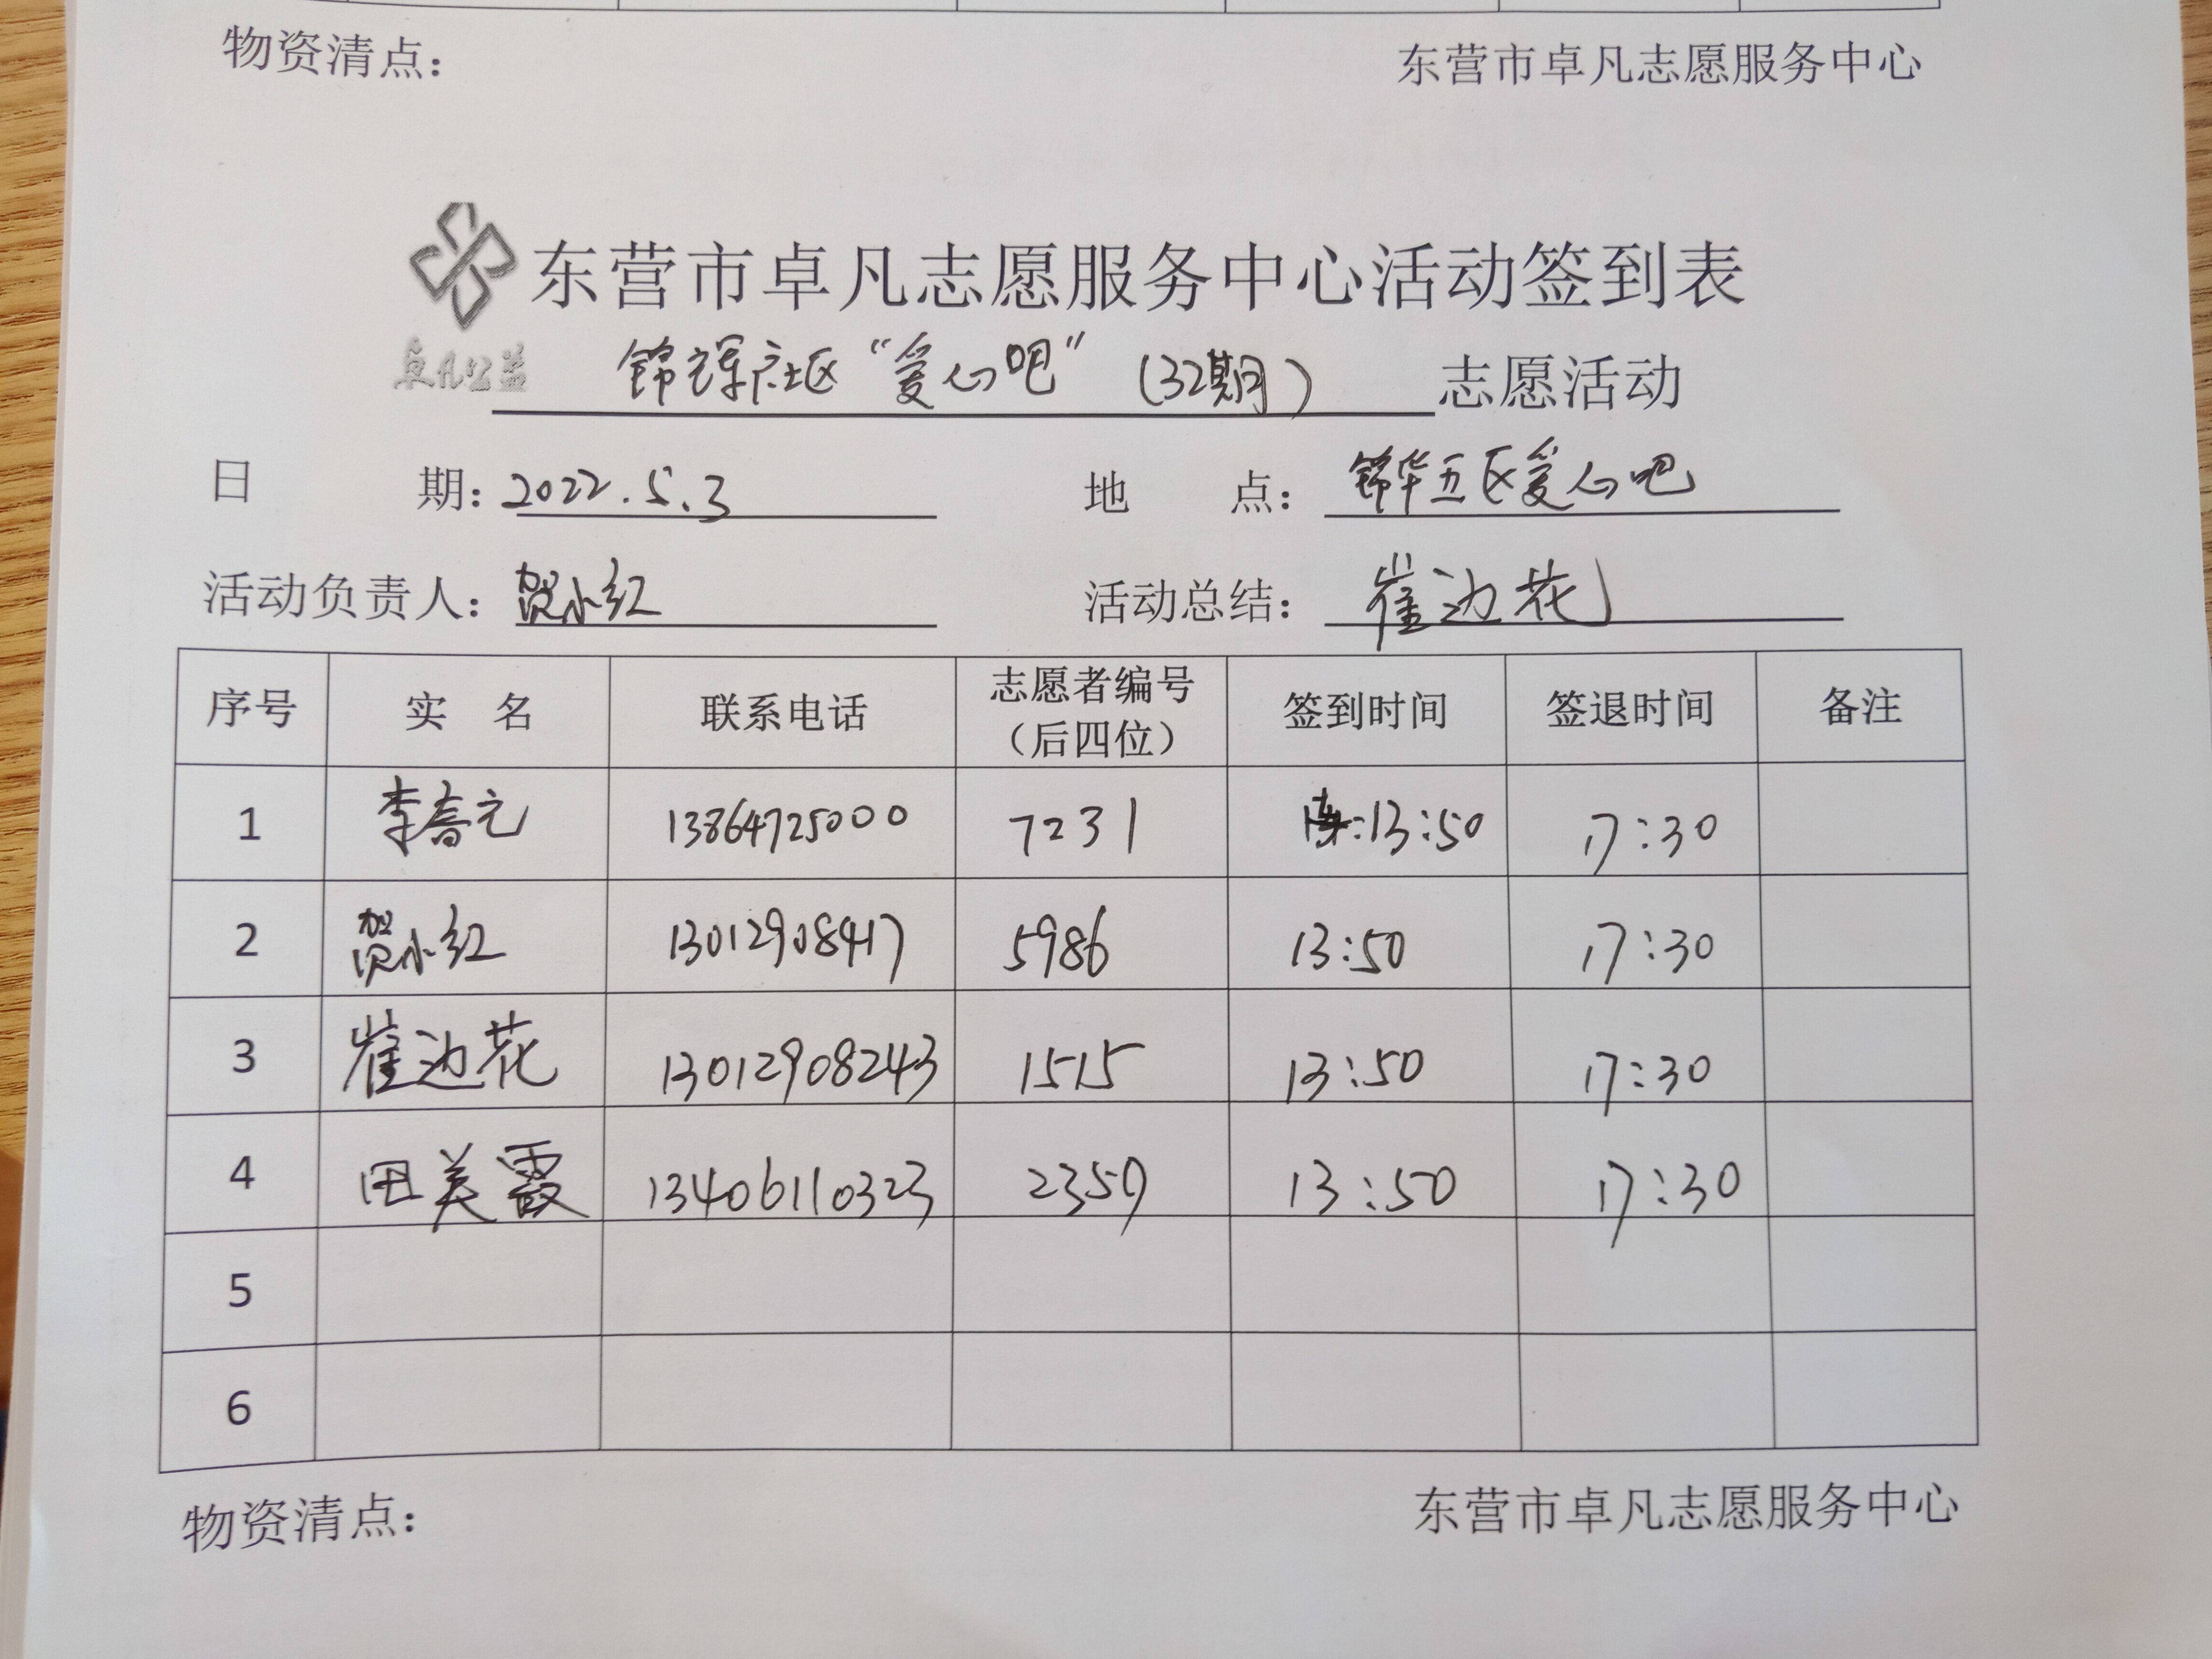 物资清点： 东营市卓凡志愿服务中心
东营市卓凡志愿服务中心活动签到表
卓凡公益 锦辉社区“爱心吧”（32期）志愿活动
日 期：2022.5.3 地 点：锦华五区爱心吧
活动负责人：贺小红 活动总结：崔边花
序号 实 名 联系电话 志愿者编号（后四位） 签到时间 签退时间 备注
1 李春元 13864725000 7231 13:50 17:30
2 贺小红 13012908417 5986 13:50 17:30
3 崔边花 13012908243 1515 13:50 17:30
4 田美霞 13406110323 2359 13:50 17:30
5
6
物资清点： 东营市卓凡志愿服务中心